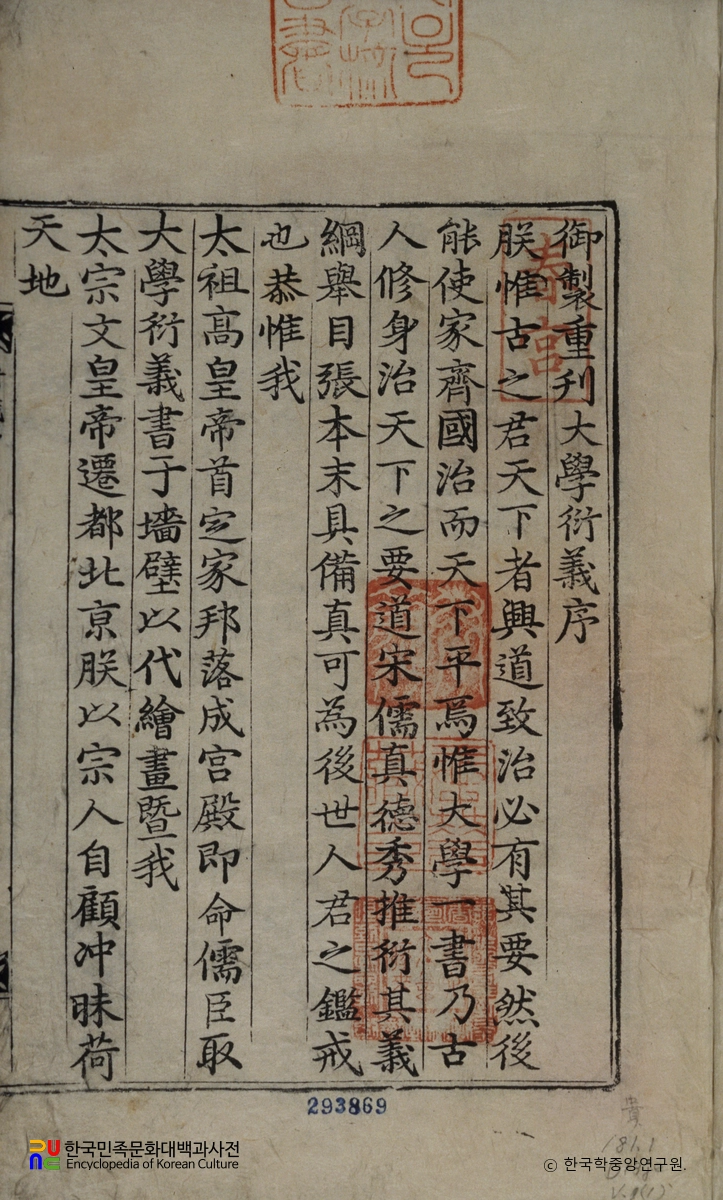 御製重刋大學衍義序
朕惟古之君天下者興道致治必有其要然後
能使家齊國治而天下平焉惟大學一書乃古
人修身治天下之要道宋儒真德秀推衍其義
綱舉目張本末具備真可為後世人君之鑑戒
也恭惟我
太祖高皇帝首定家邦落成宮殿即命儒臣取
大學衍義書于墻壁以代繪畫曁我
太宗文皇帝遷都北京朕以宗人自顧冲昧荷
天地
293869
한국민족문화대백과사전
Encyclopedia of Korean Culture
ⓒ 한국학중앙연구원.